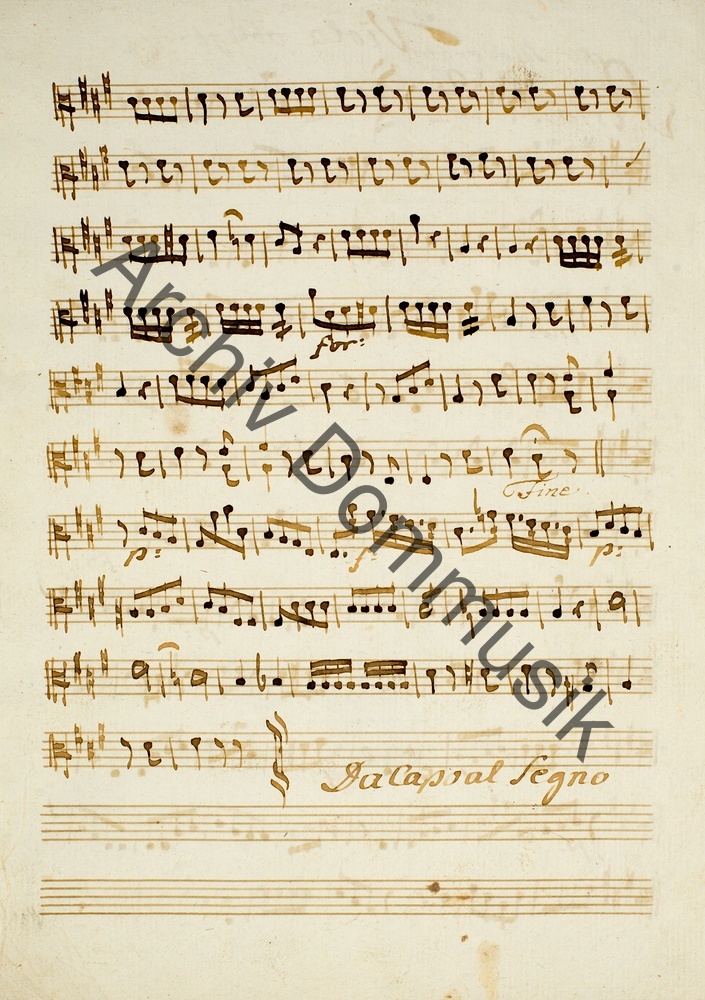 for:
Fine.
p: f: p:
Da Capo al Segno
Archiv Dommusik